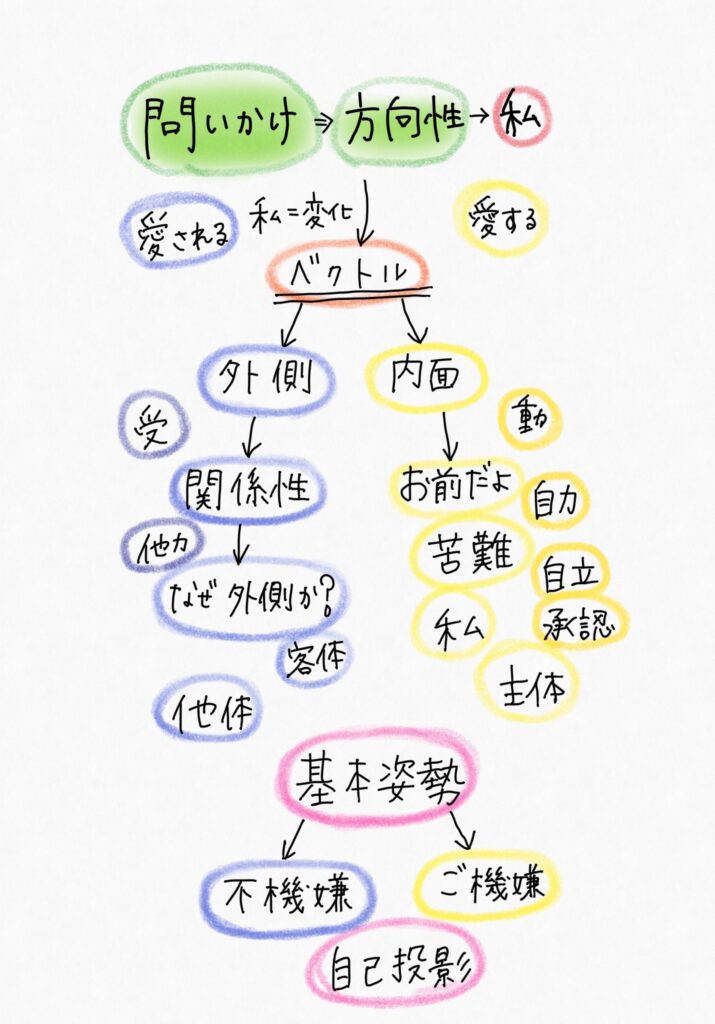 問いかけ ⇒ 方向性 → 私
愛される 私=変化 愛する
ベクトル
外側 内面
受 動
関係性 お前だよ
自力
他力 苦難
なぜ外側か? 自立
私 承認
客体
主体
他体
基本姿勢
不機嫌 ご機嫌
自己投影